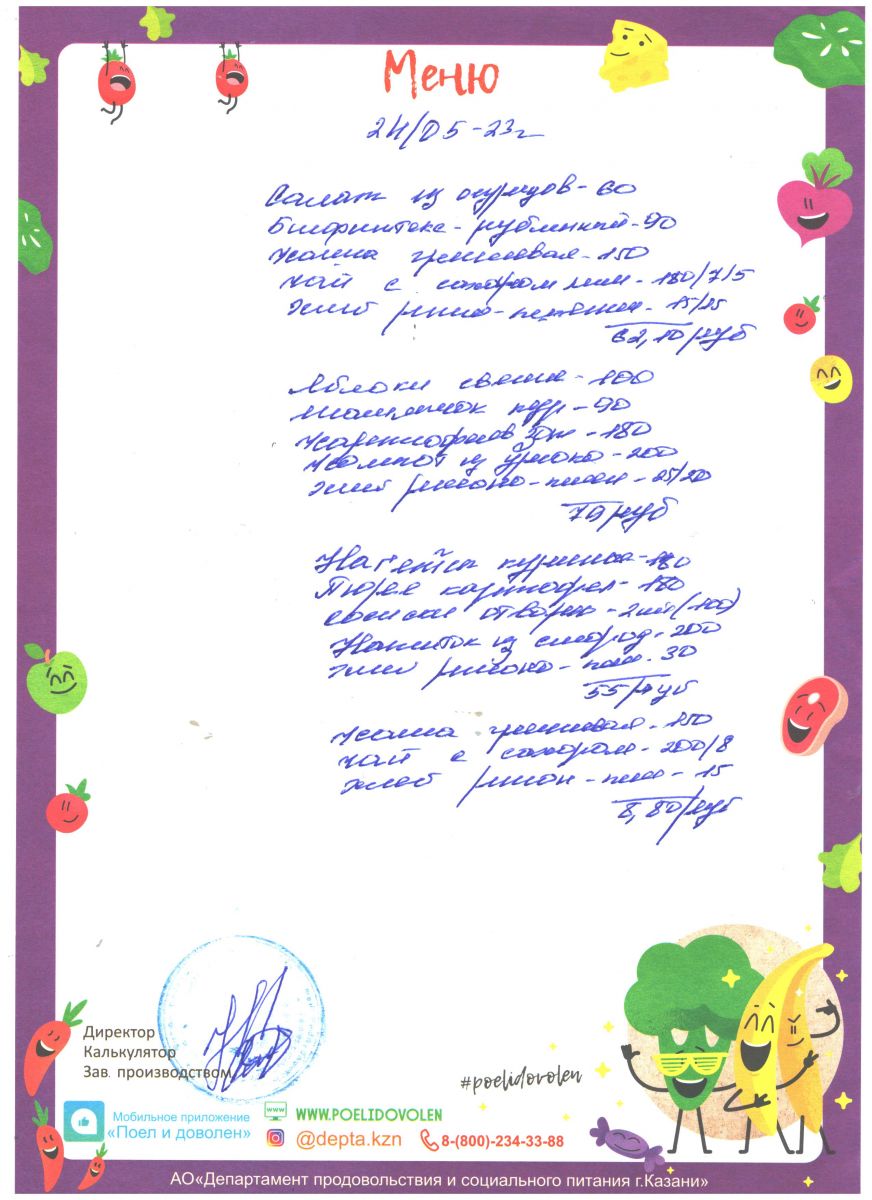 Меню
24/05-23г
Салат из огурцов-60
Бифштекс-рубленный-90
Каша гречневая-150
Чай с сахаром лим-180/7/5
Хлеб ржано-пшен-15/25
62,10руб
Яблоки свежие-100
90
Картофель-180
Компот из урюка-200
Хлеб ржано-пшен-25/20
79руб
Нагетсы куриные
Пюре картофел-180
сосиски отварн-2шт(100)
Напиток из смород-200
Хлеб ржано-пшен-30
55руб
Каша гречневая-150
Чай с сахаром-200/8
Хлеб ржан-пшен-15
8,80руб
Директор
Калькулятор
Зав. производством
#poelidovolen
Мобильное приложение
«Поел и доволен»
www
WWW.POELIDOVOLEN
@depta.kzn
8-(800)-234-33-88
АО«Департамент продовольствия и социального питания г.Казани»